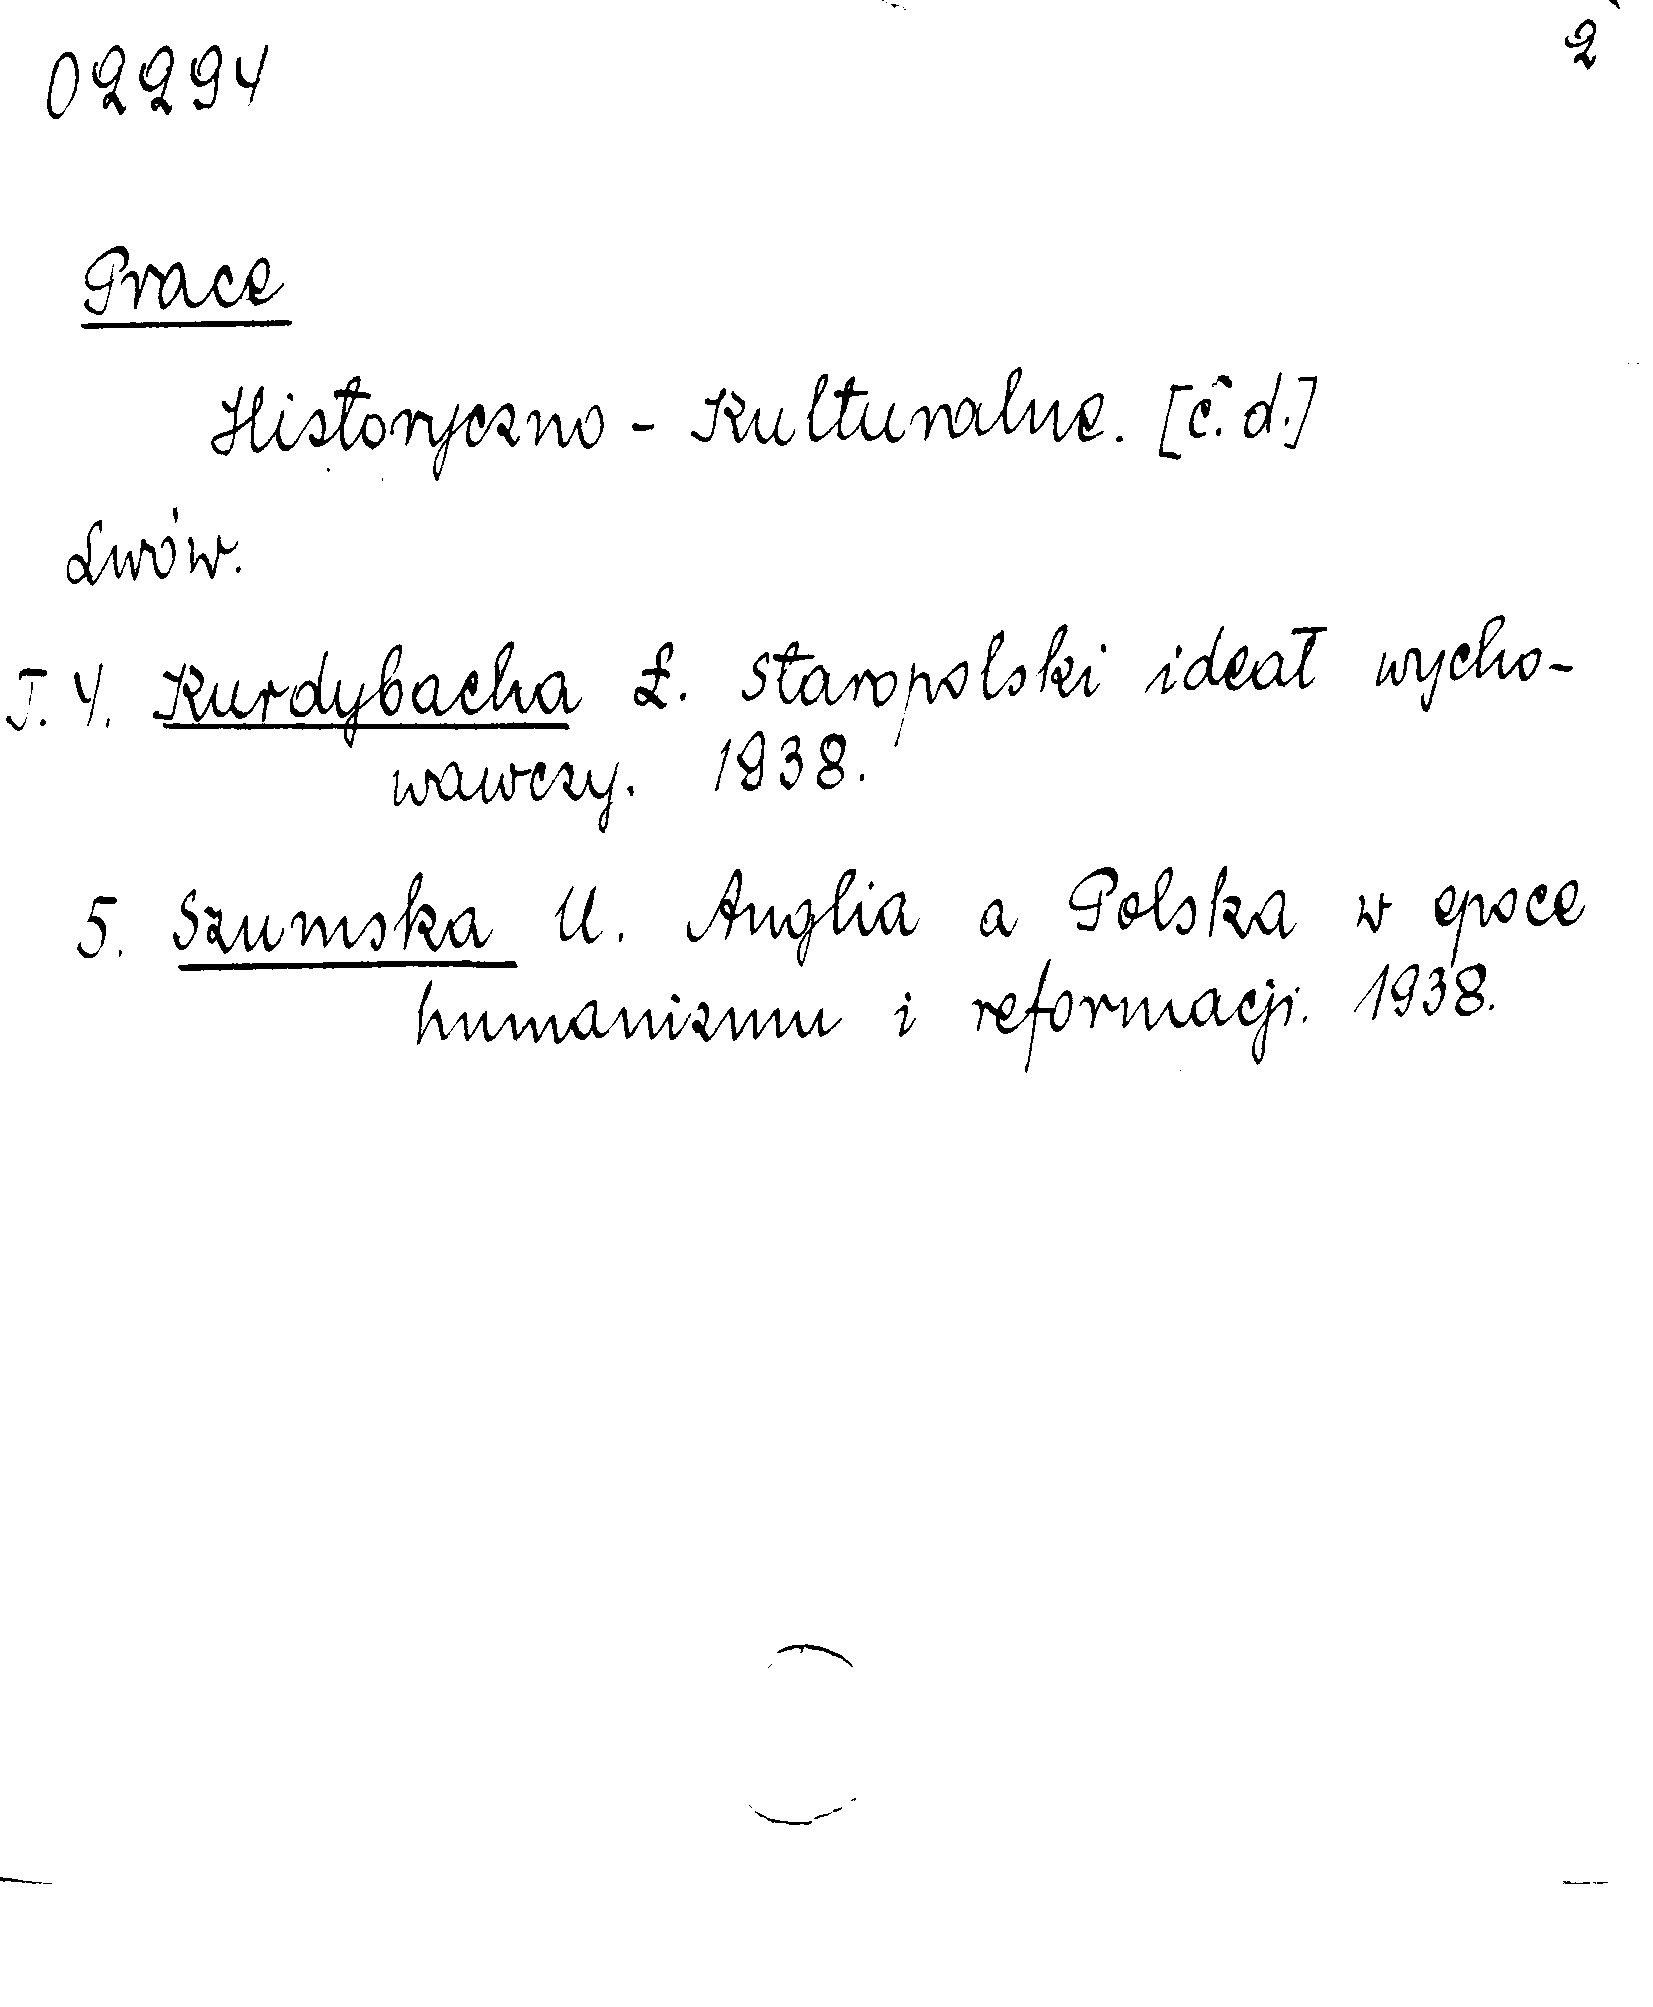 02294
2
Prace
Historyczno - Kulturalne. [c. d.]
Lwów.
T. 4. Kurdybacha Ł. Staropolski ideał wycho-
wawczy. 1938.
5. Szumska U. Anglia a Polska w epoce
humanizmu i reformacji. 1938.